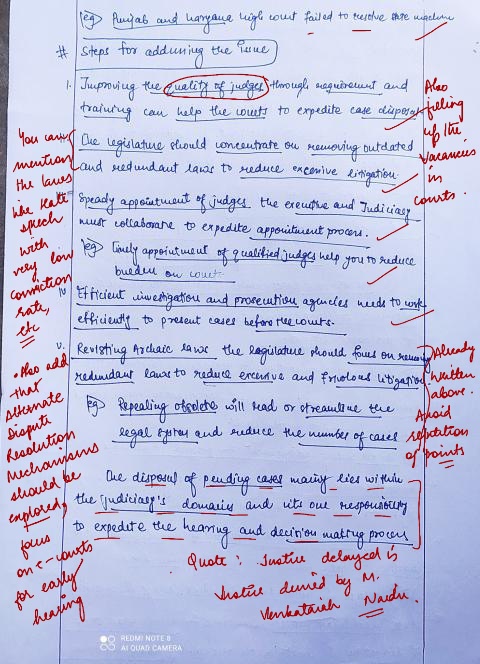 (eg) Punjab and haryana high court failed to resolve state machine
# Steps for addressing the issue
i. Improving the quality of judges through requirement and
training can help the courts to expedite case disposal
The legislature should concentrate on removing outdated
and redundant laws to reduce excessive litigation.
Speady appointment of judges the executive and Judiciary
must collaborate to expedite appointment process.
(eg) Timely appointment of qualified judges help you to reduce
burden on court.
iv Efficient investigation and prosecution agencies needs to work
efficiently to present cases before the courts.
v. Revisiting Archaic laws the legislature should focus on removing
redundant laws to reduce excessive and frivolous litigation
(eg) Repealing obsolete will read or streamline the
legal system and reduce the number of cases
The disposal of pending cases mainly lies within
the judiciary's domains and its one responsibility
to expedite the hearing and decision making process
Quote: Justice delayed is
Justice denied by M.
Venkataiah Naidu.
Also
filling
up the
vacancies
in
courts.
Already
written
above.
Avoid
repetition
of points
You can
mention
the laws
like Hate
speech
with
very low
conviction
rate,
etc
• Also add
that
Alternate
Dispute
Resolution
Mechanisms
should be
explored,
focus
on e-courts
for early
hearing
REDMI NOTE 8
AI QUAD CAMERA